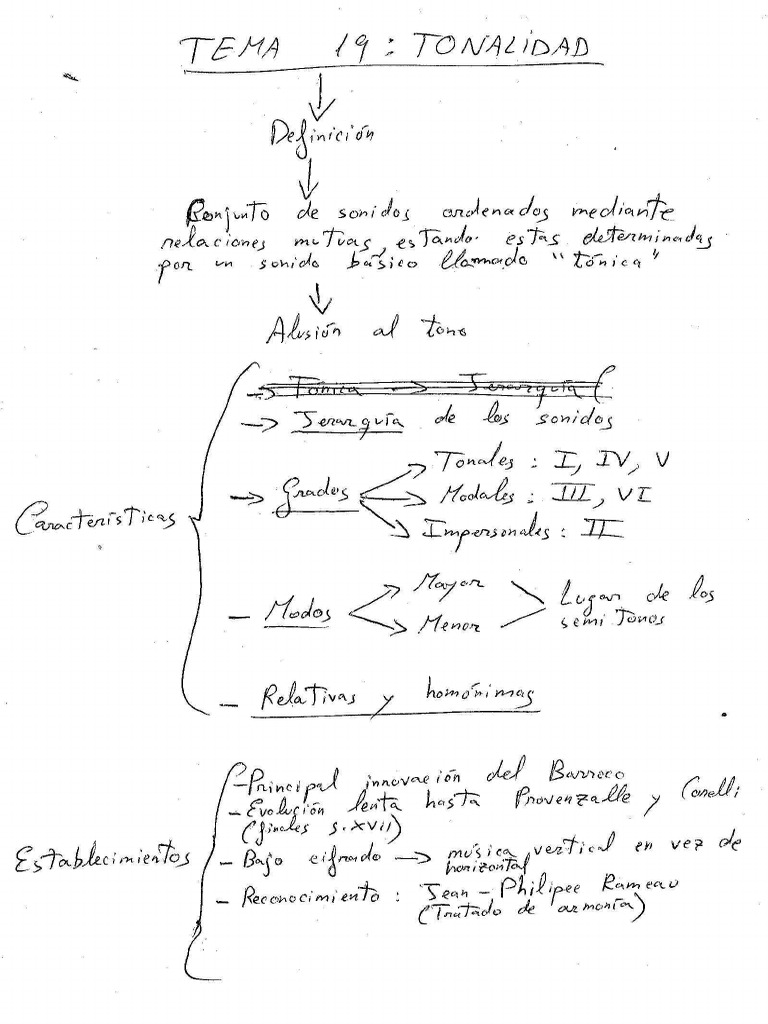 TEMA 19: TONALIDAD
Definición
Conjunto de sonidos ordenados mediante
relaciones mutuas, estando estas determinadas
por un sonido básico llamado "tónica"
Alusión al tono
→ Tónica → Jerarquía (
→ Jerarquía de los sonidos
Características
→ Grados
Tonales: I, IV, V
Modales: III, VI
Impersonales: II
- Modos
Mayor
Menor
Lugar de los
semitonos
- Relativas y homónimas
Establecimientos
- Principal innovación del Barroco
- Evolución lenta hasta Provenzalle y Corelli
(finales s. XVII)
- Bajo cifrado → música vertical en vez de
horizontal
- Reconocimiento: Jean-Philipee Rameau
(Tratado de armonía)